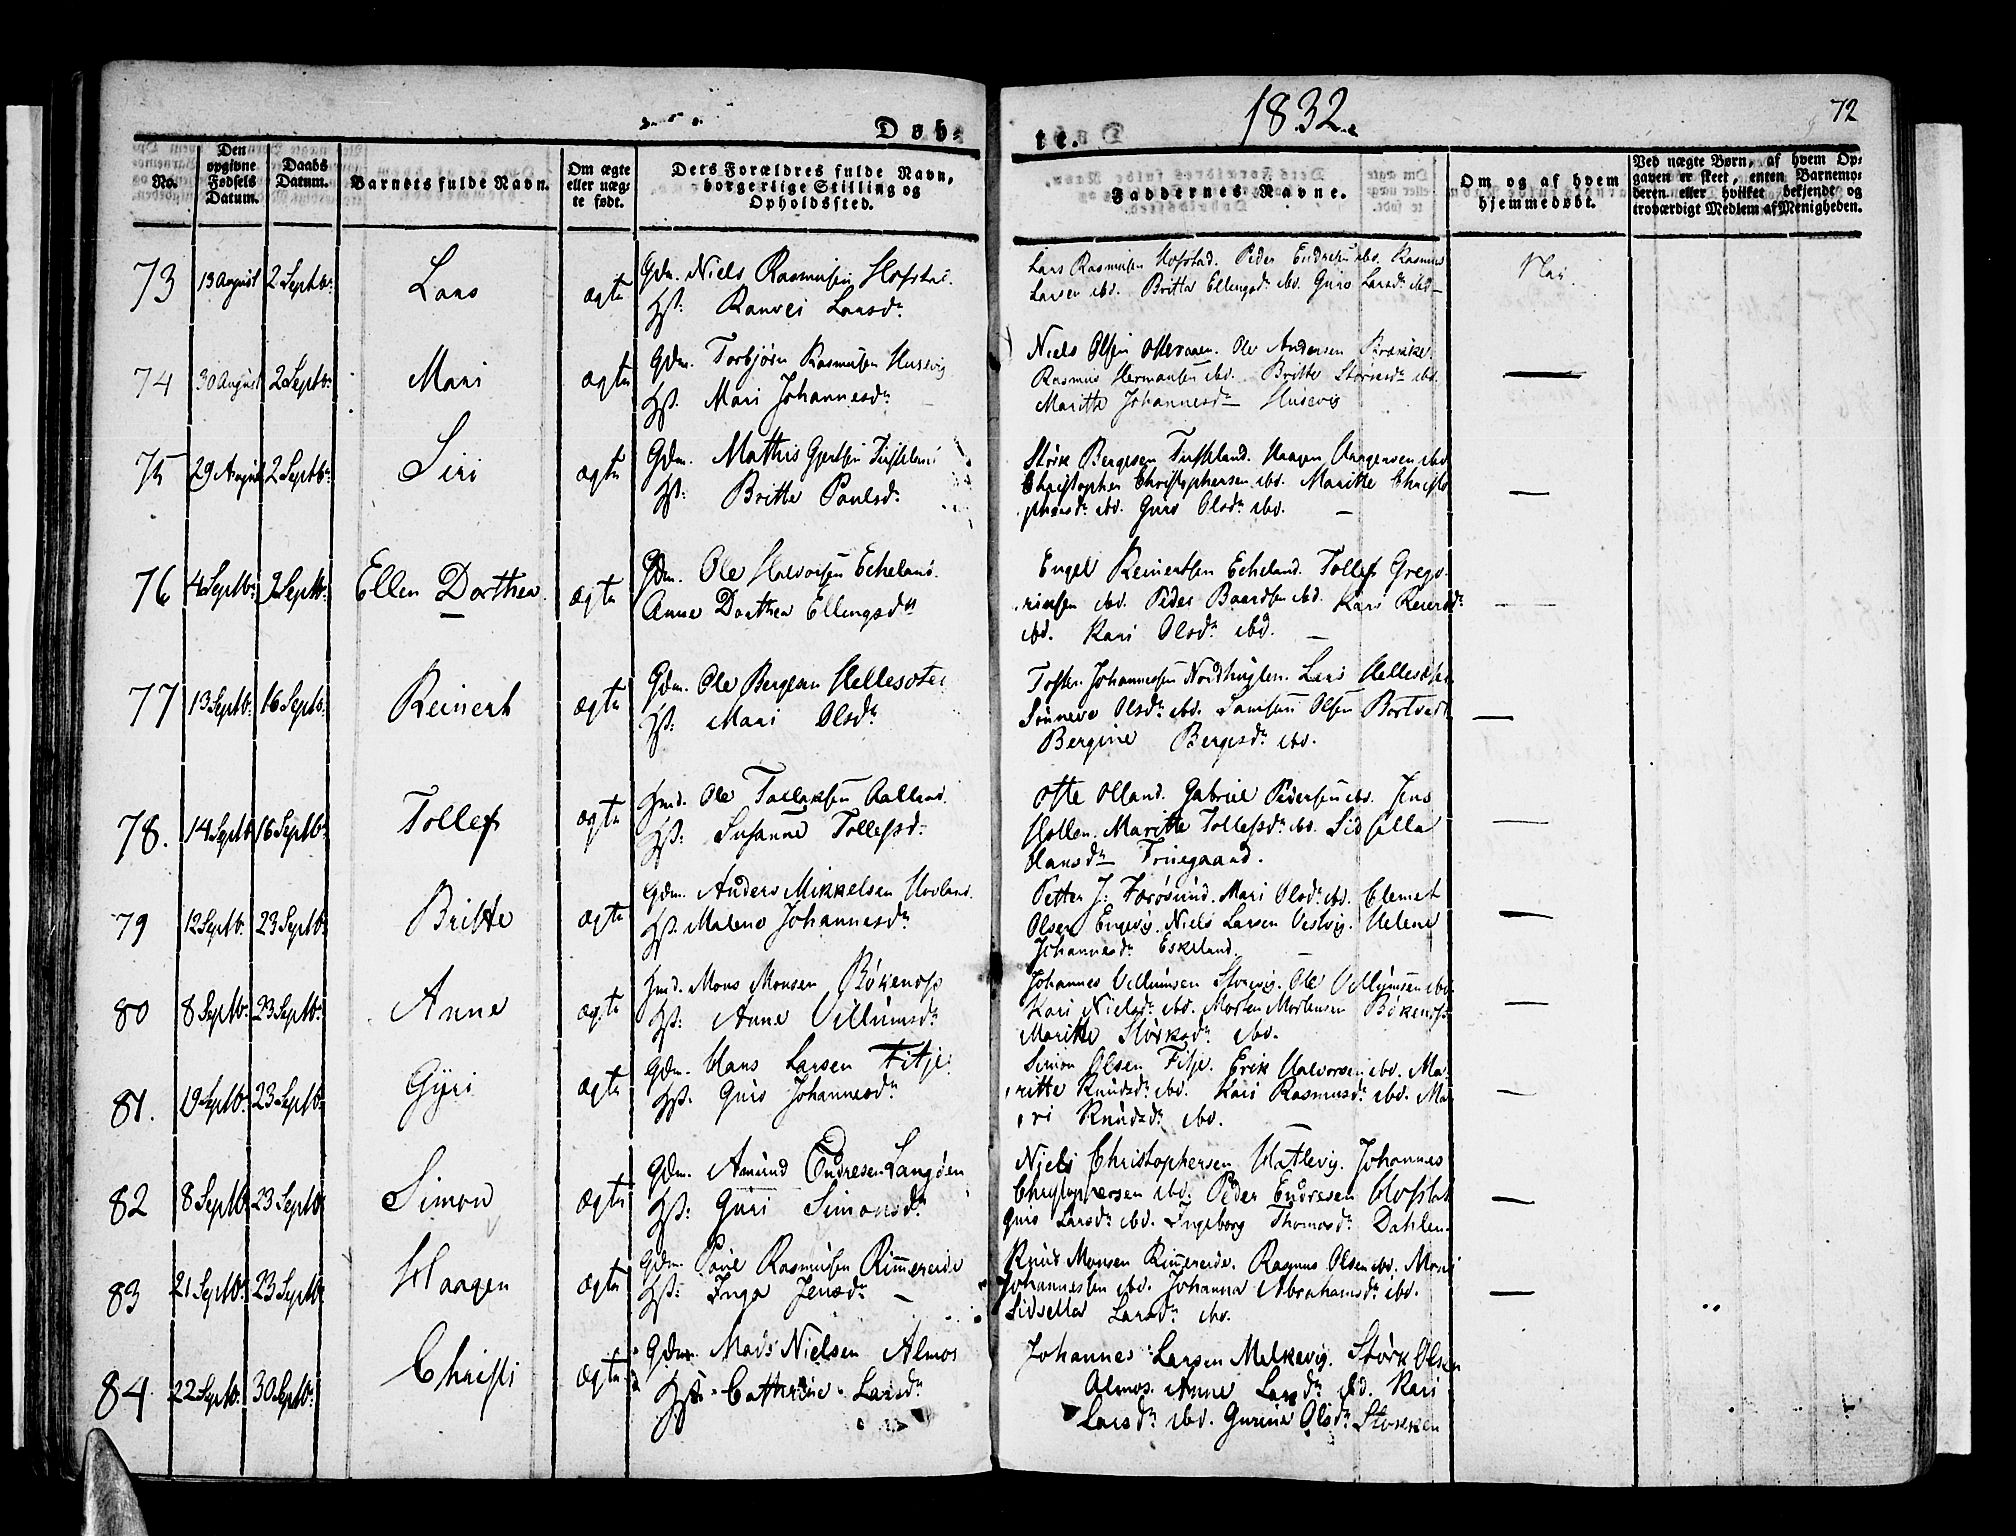 Døb-
te.
1832.
72
No.
Den opgivne Fødsels Datum.
Daabs Datum.
Barnets fulde Navn.
Om ægte eller uæg-te født.
Dets Forældres fulde Navn, borgerlige Stilling og Opholdssted.
Faddernes Navne.
Om og af hvem hjemmedøbt.
Ved uægte Børn, af hvem Op-gaven er skeet, enten Barnemo-deren eller hvilket bekjendt og troværdigt Medlem af Menigheden.
73 13 August 2 Septbr: Lars ægte Gdm. Niels Rasmussen Hofstad.
Hst: Ranvei Larsdr
Lars Rasmussen Hofstad. Peder Endresen ibd. Rasmus
Larsen ibd. Britta Ellingsdr ibd. Guro Larsdr ibd —
Nei.
74 30 August 2 Septbr: Mari ægte Gdm. Torbjørn Rasmussen Husevig
Hst. Mari Johannesdr —
Niels Olsen Ole Andersen
Rasmus Hermansen ibd. Britte Størksdr ibd.
Maritte Johannesdr — Husevig
75 29 August 2 Septbr: Siri ægte Gdm. Mathis Gjertsen
Hst: Britte Paulsdr
Størk Bergesen Haagen Aagesen ibd
Christopher Christophersen ibd. Maritte Christo
phersdr ibd. Guro Olsdr ibd. —
76 4 Septbr: 9 Septbr: Ellen Dorthea ægte Gdm. Ole Halvorsen Echeland.
Anne Dorthea Ellingsdtr
Engel Reinertsen Echeland. Tollef Grego-
riusen ibd. Peder Baardsen ibd. Kari Reiersdr
ibd. Kari Olsdr ibd. —
77 13 Septbr: 16 Septbr: Reinert ægte Gdm. Ole Bergesen Hellesøter
Hst: Mari Olsdr
Johannessen Nordhuglen. Lars Hellesøter
Sønneve Olsdr ibd. Samson Olsen Bortvedt
Bergine Bergesdr ibd.
78. 14 Septbr 16 Septbr: Tollef ægte Hmd. Ole Tollaksen Aalland.
Hst: Susanne Tollefsdr
Otte Olland. Gabriel Pedersen ibd. Jens
Hollen. Maritte Tollefsdr ibd. Lidsella
Hansdr
79 12 Septbr. 23 Septbr: Britte ægte Gdm. Anders Mikkelsen Hovland.
Hst. Malene Johannesdr
Petter J. Færøsund. Mari Olsdr ibd. Clemet
Olsen Engevig. Niels Larsen Vestvig. Helene
Johannesdr Eskeland. —
80 8 Septbr: 23 Septbr: Anne ægte Hmd. Mons Monsen Bøkenæs
Hst: Anne Villumsdr
Johannes Villumsen Storevig. Ole Villumsen ibd.
Kari Nielsdr ibd. Morten Mortensen Bøkenæs
Maritte Størksdr ibd.
81. 19 Septbr: 23 Septbr: Gyri ægte Gdm. Hans Larsen Fitje.
Hst. Guro Johannesdr
Simon Olsen Fitje. Erik Halvorsen ibd. Ma-
ritte Knudsdr ibd. Kari Rasmusdr ibd. Ma-
ri Knudsdr ibd.
82 8 Septbr 23 Septbr Simon ægte Gdm. Amund Endresen Langøen
Hst: Guri Simonsdr
Niels Christophersen Hatlevig. Johannes
Christophersen ibd. Peder Endresen Hofstad
Guro Larsdr ibd. Ingeborg Thomasdr Dahlen.
83 21 Septbr: 23 Septbr Haagen ægte Gdm. Povel Rasmussen Rimmereide
Hst: Inga Jensdr —
Knud Monsen Rimmereide. Rasmus Olsen ibd. Mons
Johannessen ibd. Johanna Abrahamsdr ibd.
Lidsella Larsdr ibd.
84. 22 Septbr. 30 Septbr: Christi ægte Gdm. Mads Nielsen Almos
Hst. Cathrine Larsdr
Johannes Larsen Melkevig. Størk Olsen
Almos. Anne Larsdr ibd. Kari
Larsdr ibd. Gurine Olsdr Stokken